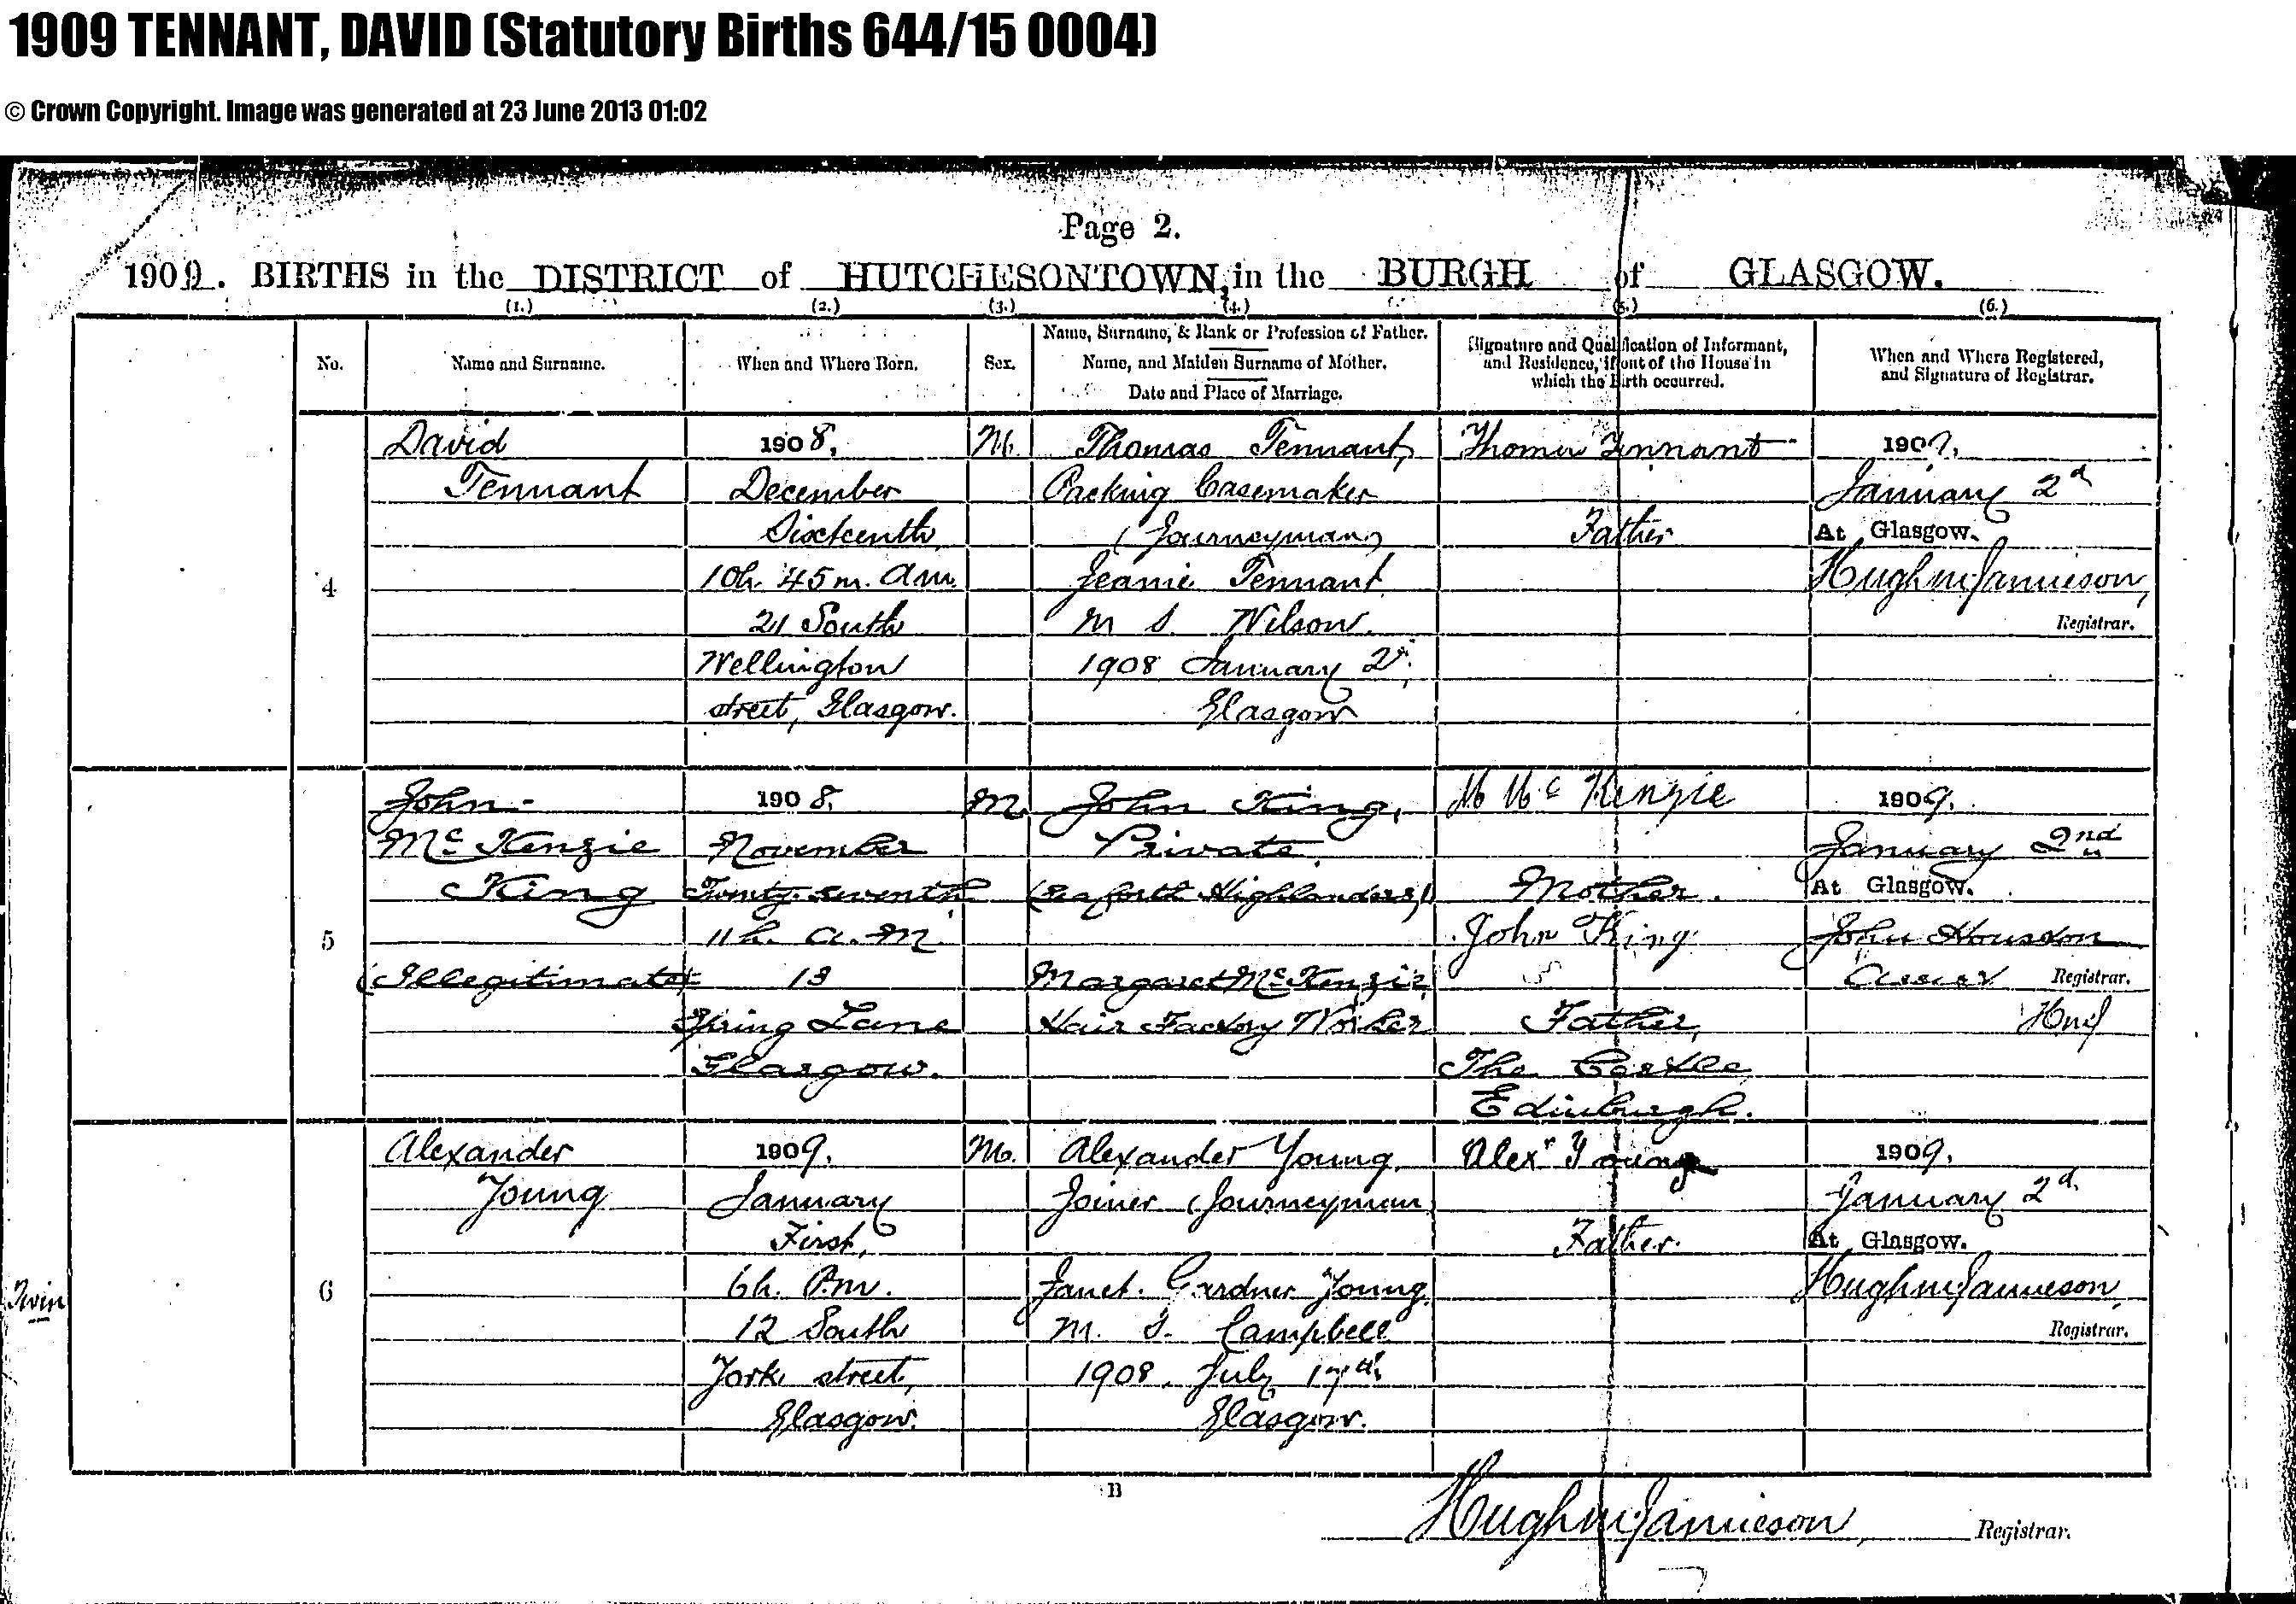 1909 TENNANT, DAVID (Statutory Births 644/15 0004)
© Crown Copyright. Image was generated at 23 June 2013 01:02
Page 2.
1909. BIRTHS in the DISTRICT of HUTCHESONTOWN, in the BURGH of GLASGOW.
(1.) (2.) (3.) (4.) (5.) (6.)
No.
Name and Surname.
When and Where Born.
Sex.
Name, Surname, & Rank or Profession of Father.
Name, and Maiden Surname of Mother.
Date and Place of Marriage.
Signature and Qualification of Informant,
and Residence, if out of the House in
which the Birth occurred.
When and Where Registered,
and Signature of Registrar.
4
David
Tennant
1908,
December
Sixteenth,
10h. 45m. am.
21 South
Wellington
street, Glasgow.
M.
Thomas Tennant,
Packing Casemaker
(Journeyman)
Jeanie Tennant
m s. Wilson.
1908 January 2d,
Glasgow
Thomas Tennant
Father
1909.
January 2d
At Glasgow.
Hugh m Jamieson,
Registrar.
5
John
McKenzie
King
(Illegitimate)
1908,
November
Twenty-seventh
11h. a.m.
13
Spring Lane
Glasgow.
M.
John King,
Private
(Seaforth Highlanders)
Margaret McKenzie,
Hair Factory Worker
M McKenzie
Mother.
John King
Father,
The Castle,
Edinburgh.
1909.
January 2nd
At Glasgow.
John Houston
Assist Registrar.
HmJ
Twin
6
Alexander
Young
1909.
January
First,
6h. Pm.
12 South
York street,
Glasgow.
M.
Alexander Young,
Joiner (Journeyman)
Janet Gardner Young
m. s. Campbell
1908. July 17th,
Glasgow.
Alexr Young
Father.
1909.
January 2d.
At Glasgow.
Hugh m Jamieson,
Registrar.
B
Hugh m Jamieson, Registrar.